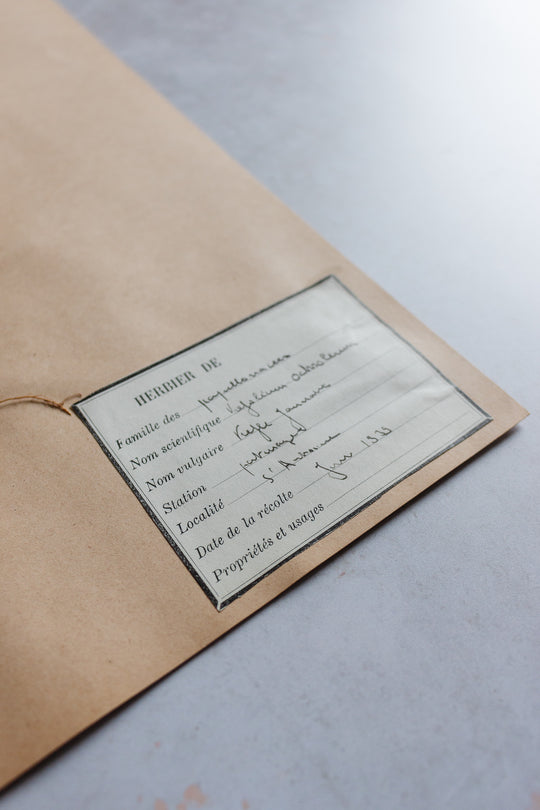 HERBIER DE
Famille des papillonacées
Nom scientifique
Nom vulgaire Trèfle Jaunâtre
Station paturages
Localité St Antoine
Date de la récolte Juin
Propriétés et usages